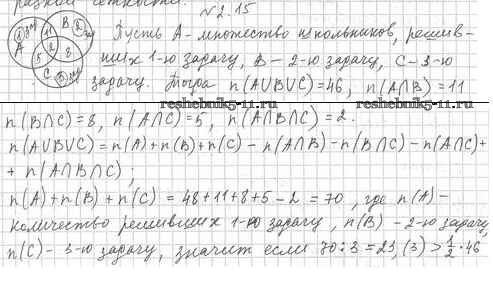 №2.15
Пусть A - множество школьников, решив-
ших 1-ю задачу, B - 2-ю задачу, C - 3-ю
задачу. Тогда n(A∪B∪C)=46, n(A∩B)=11
reshebnik5-11.ru reshebnik5-11.ru
n(B∩C)=8, n(A∩C)=5, n(A∩B∩C)=2.
n(A∪B∪C)=n(A)+n(B)+n(C)-n(A∩B)-n(B∩C)-n(A∩C)+
+ n(A∩B∩C);
n(A)+n(B)+n(C) = 48+11+8+5-2=70, где n(A)-
количество решивших 1-ю задачу, n(B) - 2-ю задачу,
n(C) - 3-ю задачу, значит если 70:3=23,(3)>1/2·46
A 11 B
2
5 8
C